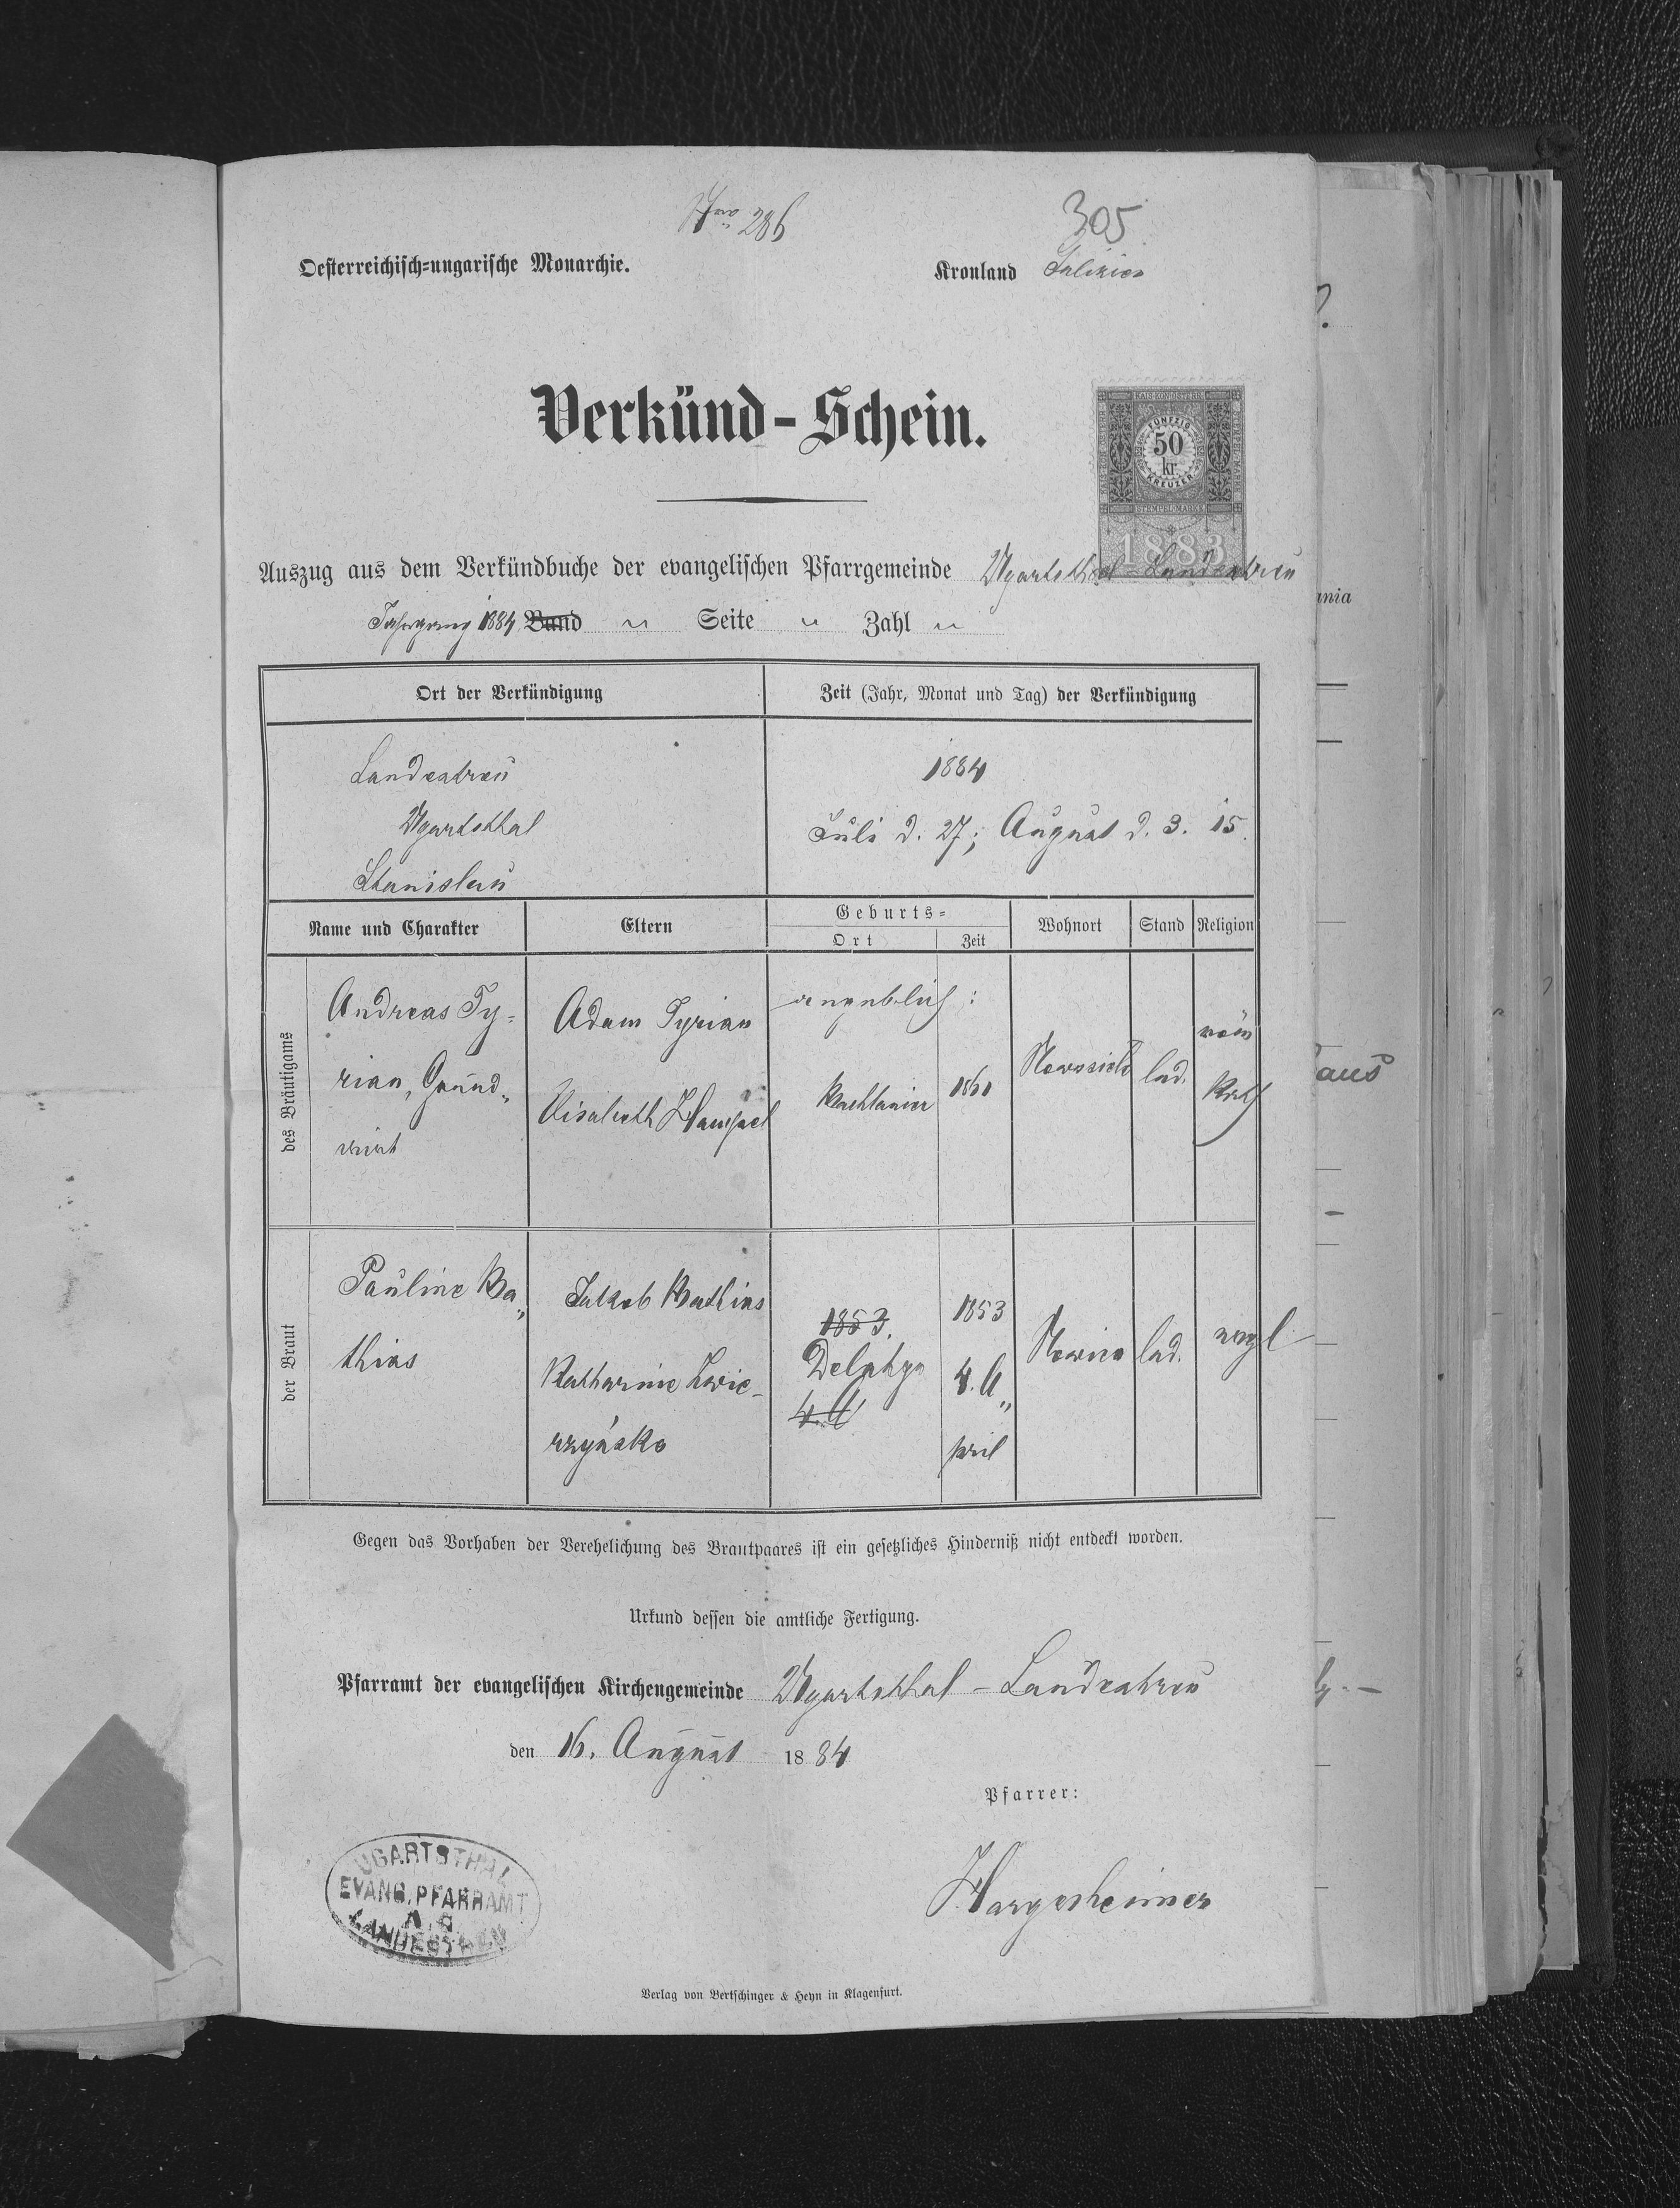 Nro 286
305
Oesterreichisch-ungarische Monarchie.
Kronland Galizien
Verkünd-Schein.
KAIS. KÖN. ÖSTERR.
FÜNFZIG
50
kr.
KREUZER
STEMPEL-MARKE
1883
Auszug aus dem Verkündbuche der evangelischen Pfarrgemeinde Ugartsthal-Landestreu
Jahrgang 1884 Band " Seite " Zahl "
Ort der Verkündigung Zeit (Jahr, Monat und Tag) der Verkündigung
Landestreu
Ugartsthal
Stanislau
1884
Juli d. 27; August d. 3. 15.
Name und Charakter Eltern Geburts- Wohnort Stand Religion
Ort Zeit
des Bräutigams
Andreas Ty-
rian, Grund-
wirt
Adam Tyrian
Elisabeth Hampel
angeblich:
1860
led.
röm
kath
der Braut
Pauline Ma-
thias
Jakob Mathias
Katharine Zwie-
rzyńska
1853.
Delatyn
4. A
1853
4. A-
pril
led.
evgl
Gegen das Vorhaben der Verehelichung des Brautpaares ist ein gesetzliches Hinderniß nicht entdeckt worden.
Urkund dessen die amtliche Fertigung.
Pfarramt der evangelischen Kirchengemeinde Ugartsthal-Landestreu
den 16. August 1884
Pfarrer:
Hargesheimer
UGARTSTHAL
EVANG. PFARRAMT
A. C.
LANDESTREU
Verlag von Bertschinger & Heyn in Klagenfurt.
nia
aus